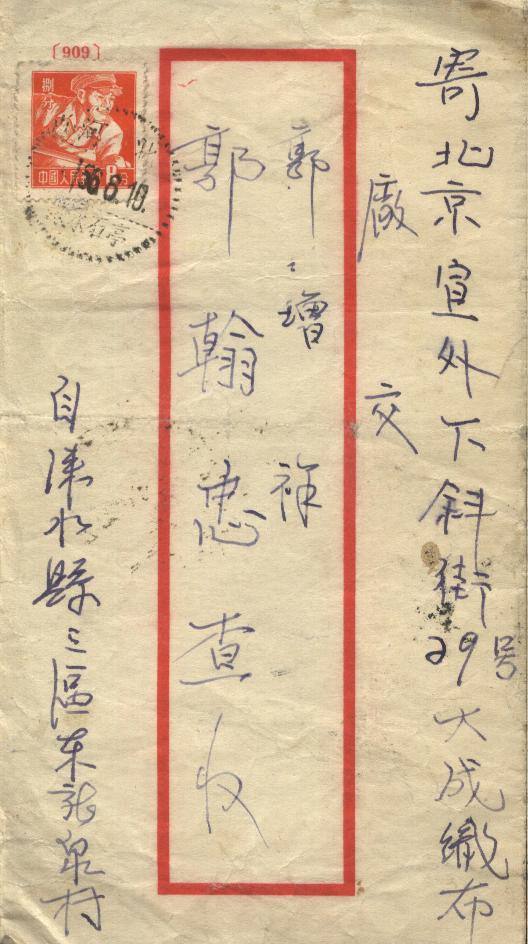 寄北京宣外下斜街29号大成織布
廠交
郭增祥
郭翰忠查收
自涞水縣三區东龍泉村
〔909〕
捌分
中國人民
56.8.10.